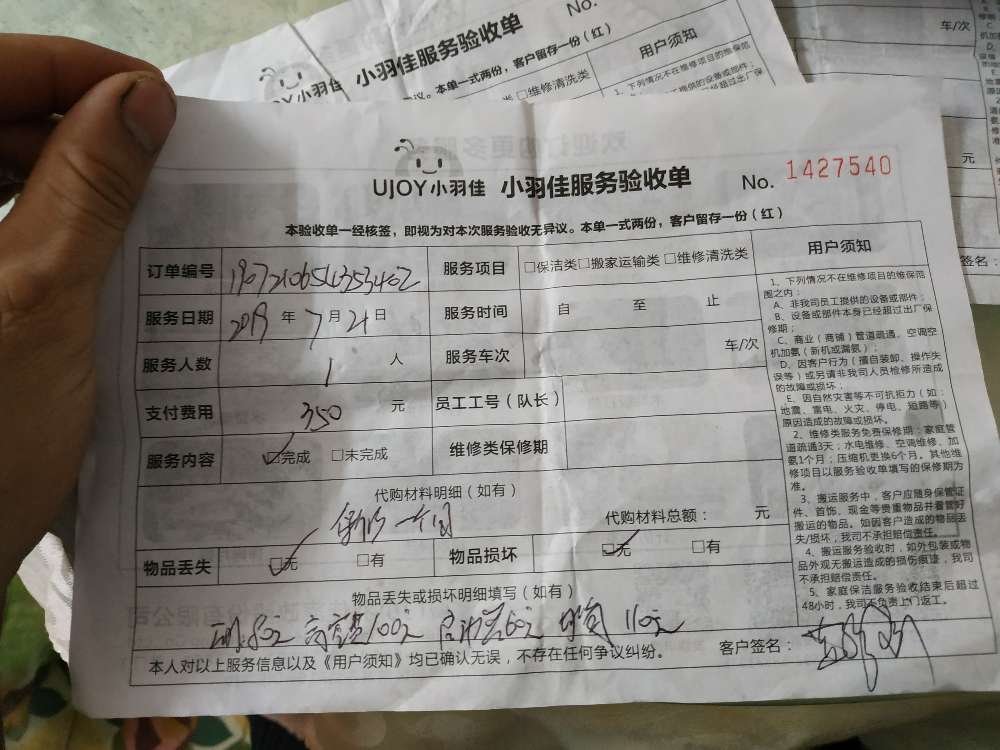 小羽佳服务验收单 No.
UJOY小羽佳
本单一式两份，客户留存一份（红）
用户须知
□维修清洗类
车/次
元
UJOY小羽佳 小羽佳服务验收单 No. 1427540
本验收单一经核签，即视为对本次服务验收无异议。本单一式两份，客户留存一份（红）
订单编号 服务项目 □保洁类□搬家运输类 □维修清洗类
服务日期 2019 年 7 月 21 日 服务时间 自 至 止
服务人数 1 人 服务车次 车/次
支付费用 350 元 员工工号（队长）
服务内容 ☑完成 □未完成 维修类保修期
代购材料明细（如有）
保修一个月 代购材料总额： 元
物品丢失 ☑无 □有 物品损坏 ☑无 □有
物品丢失或损坏明细填写（如有）
80元 高空费100元 启动器60元 110元
本人对以上服务信息以及《用户须知》均已确认无误，不存在任何争议纠纷。 客户签名：
用户须知
1、下列情况不在维修项目的维保范
围之内：
A、非我司员工提供的设备或部件；
B、设备或部件本身已经超过出厂保
修期；
C、商业（商铺）管道疏通、空调空
机加氨（新机或漏氨）；
D、因客户行为（擅自装卸、操作失
误等）或另请非我司人员检修所造成
的故障或损坏；
E、因自然灾害等不可抗拒力（如：
地震、雷电、火灾、停电、短路等）
原因造成的故障或损坏。
2、维修类服务免费保修期：家庭管
道疏通3天；水电维修、空调维修、加
氨1个月；压缩机更换6个月。其他维
修项目以服务验收单填写的保修期为
准。
3、搬运服务中，客户应随身保管证
件、首饰、现金等贵重物品并看管好
搬运的物品。如因客户造成的物品丢
失/损坏，我司不承担赔偿责任。
4、搬运服务验收时，如外包装或物
品外观无搬运造成的损伤痕迹，我司
不承担赔偿责任。
5、家庭保洁服务验收结束后超过
48小时，我司不负责上门返工。